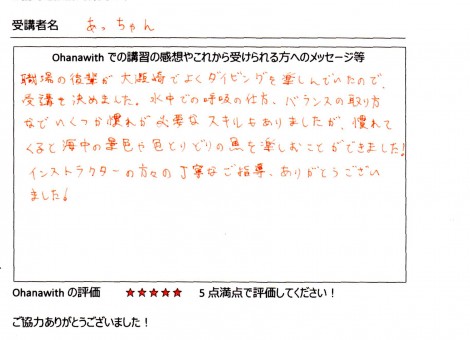 受講者名 あっちゃん
Ohanawith での講習の感想やこれから受けられる方へのメッセージ等
職場の後輩が大瀬崎でよくダイビングを楽しんでいたので、
受講を決めました。水中での呼吸の仕方、バランスの取り方
などいくつか慣れが必要なスキルもありましたが、慣れて
くると海中の景色や色とりどりの魚を楽しむことができました!
インストラクターの方々の丁寧なご指導、ありがとうござい
ました!
Ohanawith の評価 ★★★★★ 5 点満点で評価してください!
ご協力ありがとうございました!